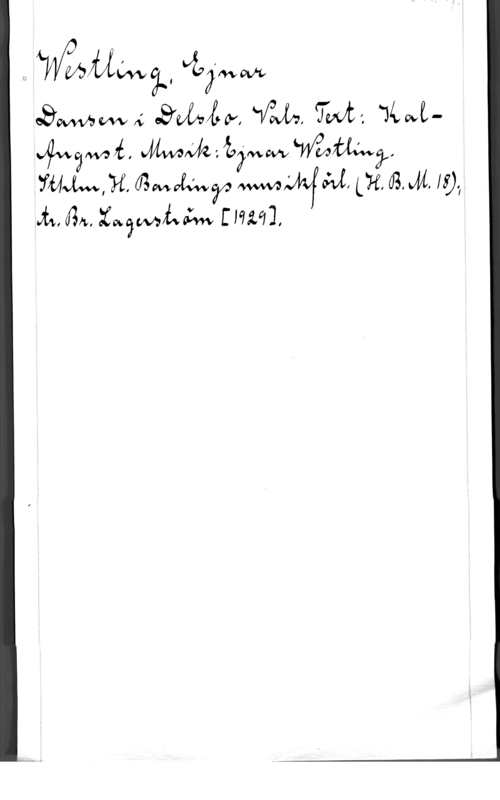 Westling, Ejnar
Dansen i Delsbo. Vals. Text: Kal-
August. Musik: Ejnar Westling.
Sthlm, H. Bardings musikförl. (H. B. M. 18),
tr. Br. Lagerström [1929].